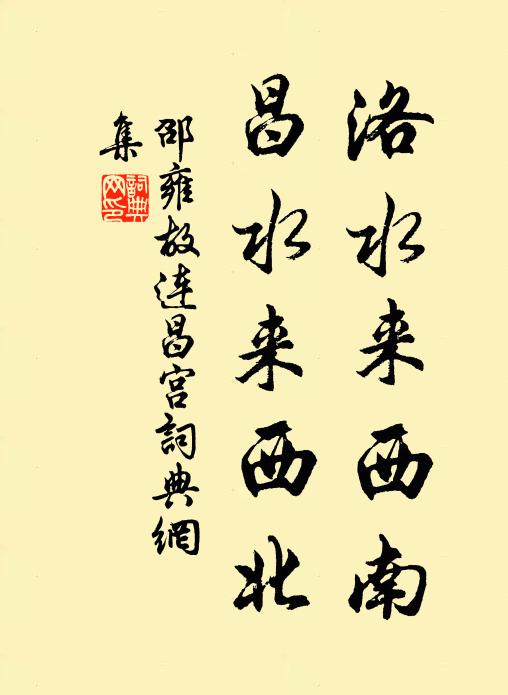 洛水来西南
昌水来西北
邵雍故连昌宫詞典網
集
詞典网印